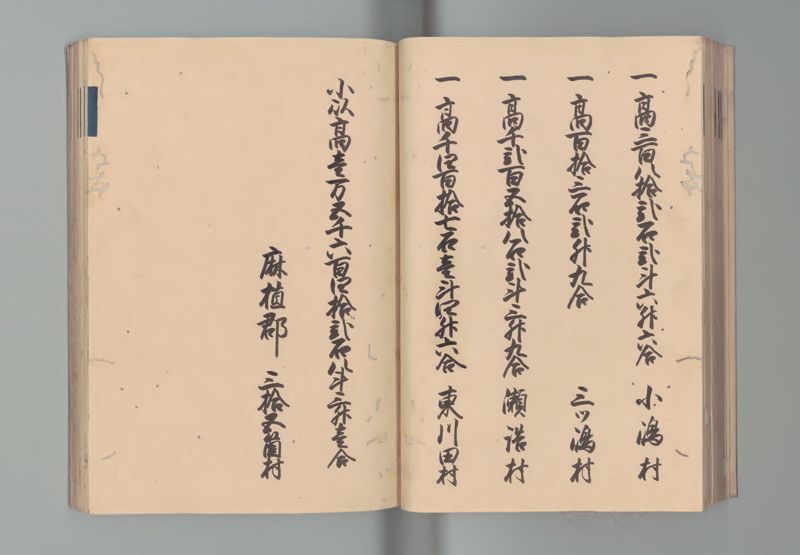 一 高三百八拾弐石弐斗六升六合 小嶋村
一 高百拾三石弐升九合 三ツ嶋村
一 高千弐百五拾八石弐斗三升九合 瀬詰村
一 高千四百拾七石壱斗四升六合 東川田村
小以高壱万五千六百四拾弐石八斗三升壱合
麻植郡 三拾五箇村